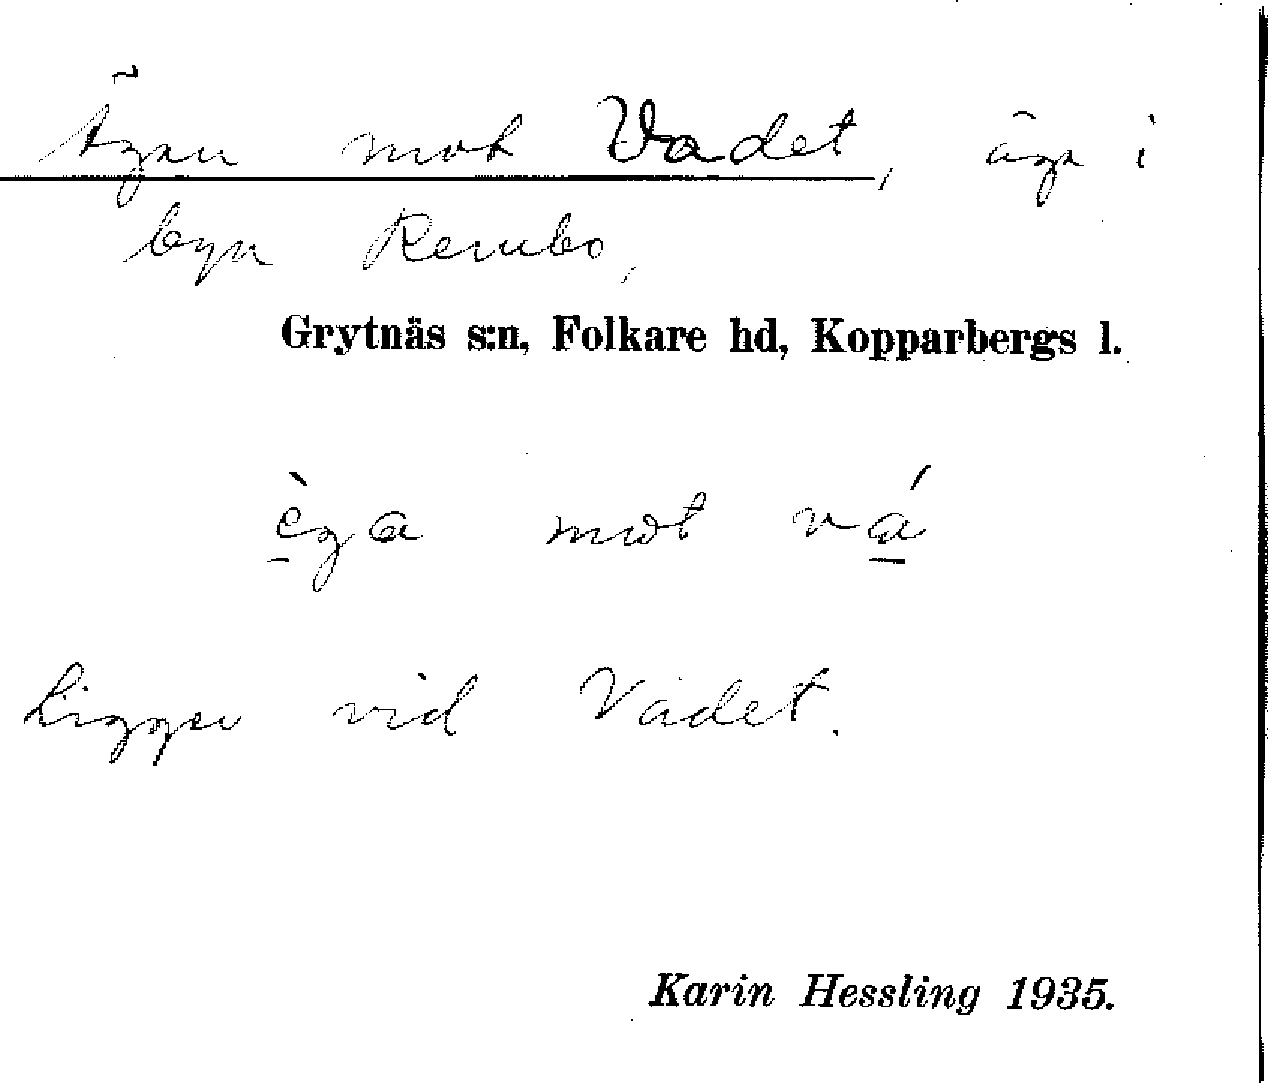 Ägan mot Vadet, äga i
byn Rembo,
Grytnäs s:n, Folkare hd, Kopparbergs l.
èga mot vá
Ligger vid Vadet.
Karin Hessling 1935.